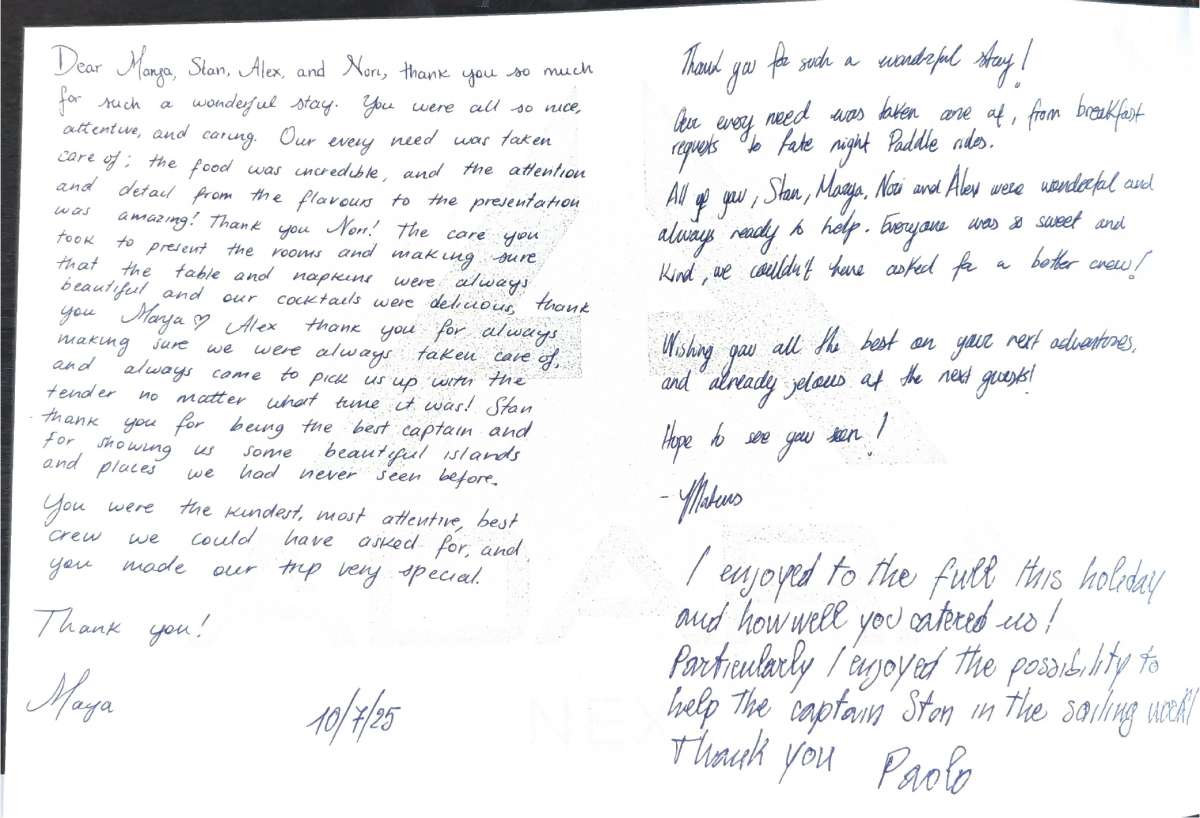 Dear Marya, Stan, Alex, and Nori, thank you so much
for such a wonderful stay. You were all so nice,
attentive, and caring. Our every need was taken
care of; the food was incredible, and the attention
and detail from the flavours to the presentation
was amazing! Thank you Nori! The care you
took to present the rooms and making sure
that the table and napkins were always
beautiful and our cocktails were delicious, thank
you Marya ♡ Alex thank you for always
making sure we were always taken care of,
and always came to pick us up with the
tender no matter what time it was! Stan
thank you for being the best captain and
for showing us some beautiful islands
and places we had never seen before.
You were the kindest, most attentive, best
crew we could have asked for, and
you made our trip very special.
Thank you!
Maya
10/7/25
Thank you for such a wonderful stay!
Our every need was taken care of, from breakfast
requests to late night Paddle rides.
All of you, Stan, Marya, Nori and Alex were wonderful and
always ready to help. Everyone was so sweet and
kind, we couldn't have asked for a better crew!
Wishing you all the best on your next adventures,
and already jelous of the next guests!
Hope to see you soon!
I enjoyed to the full this holiday
and how well you catered us!
Particularly I enjoyed the possibility to
help the captain Stan in the sailing work!
Thank you
Paolo
NEX